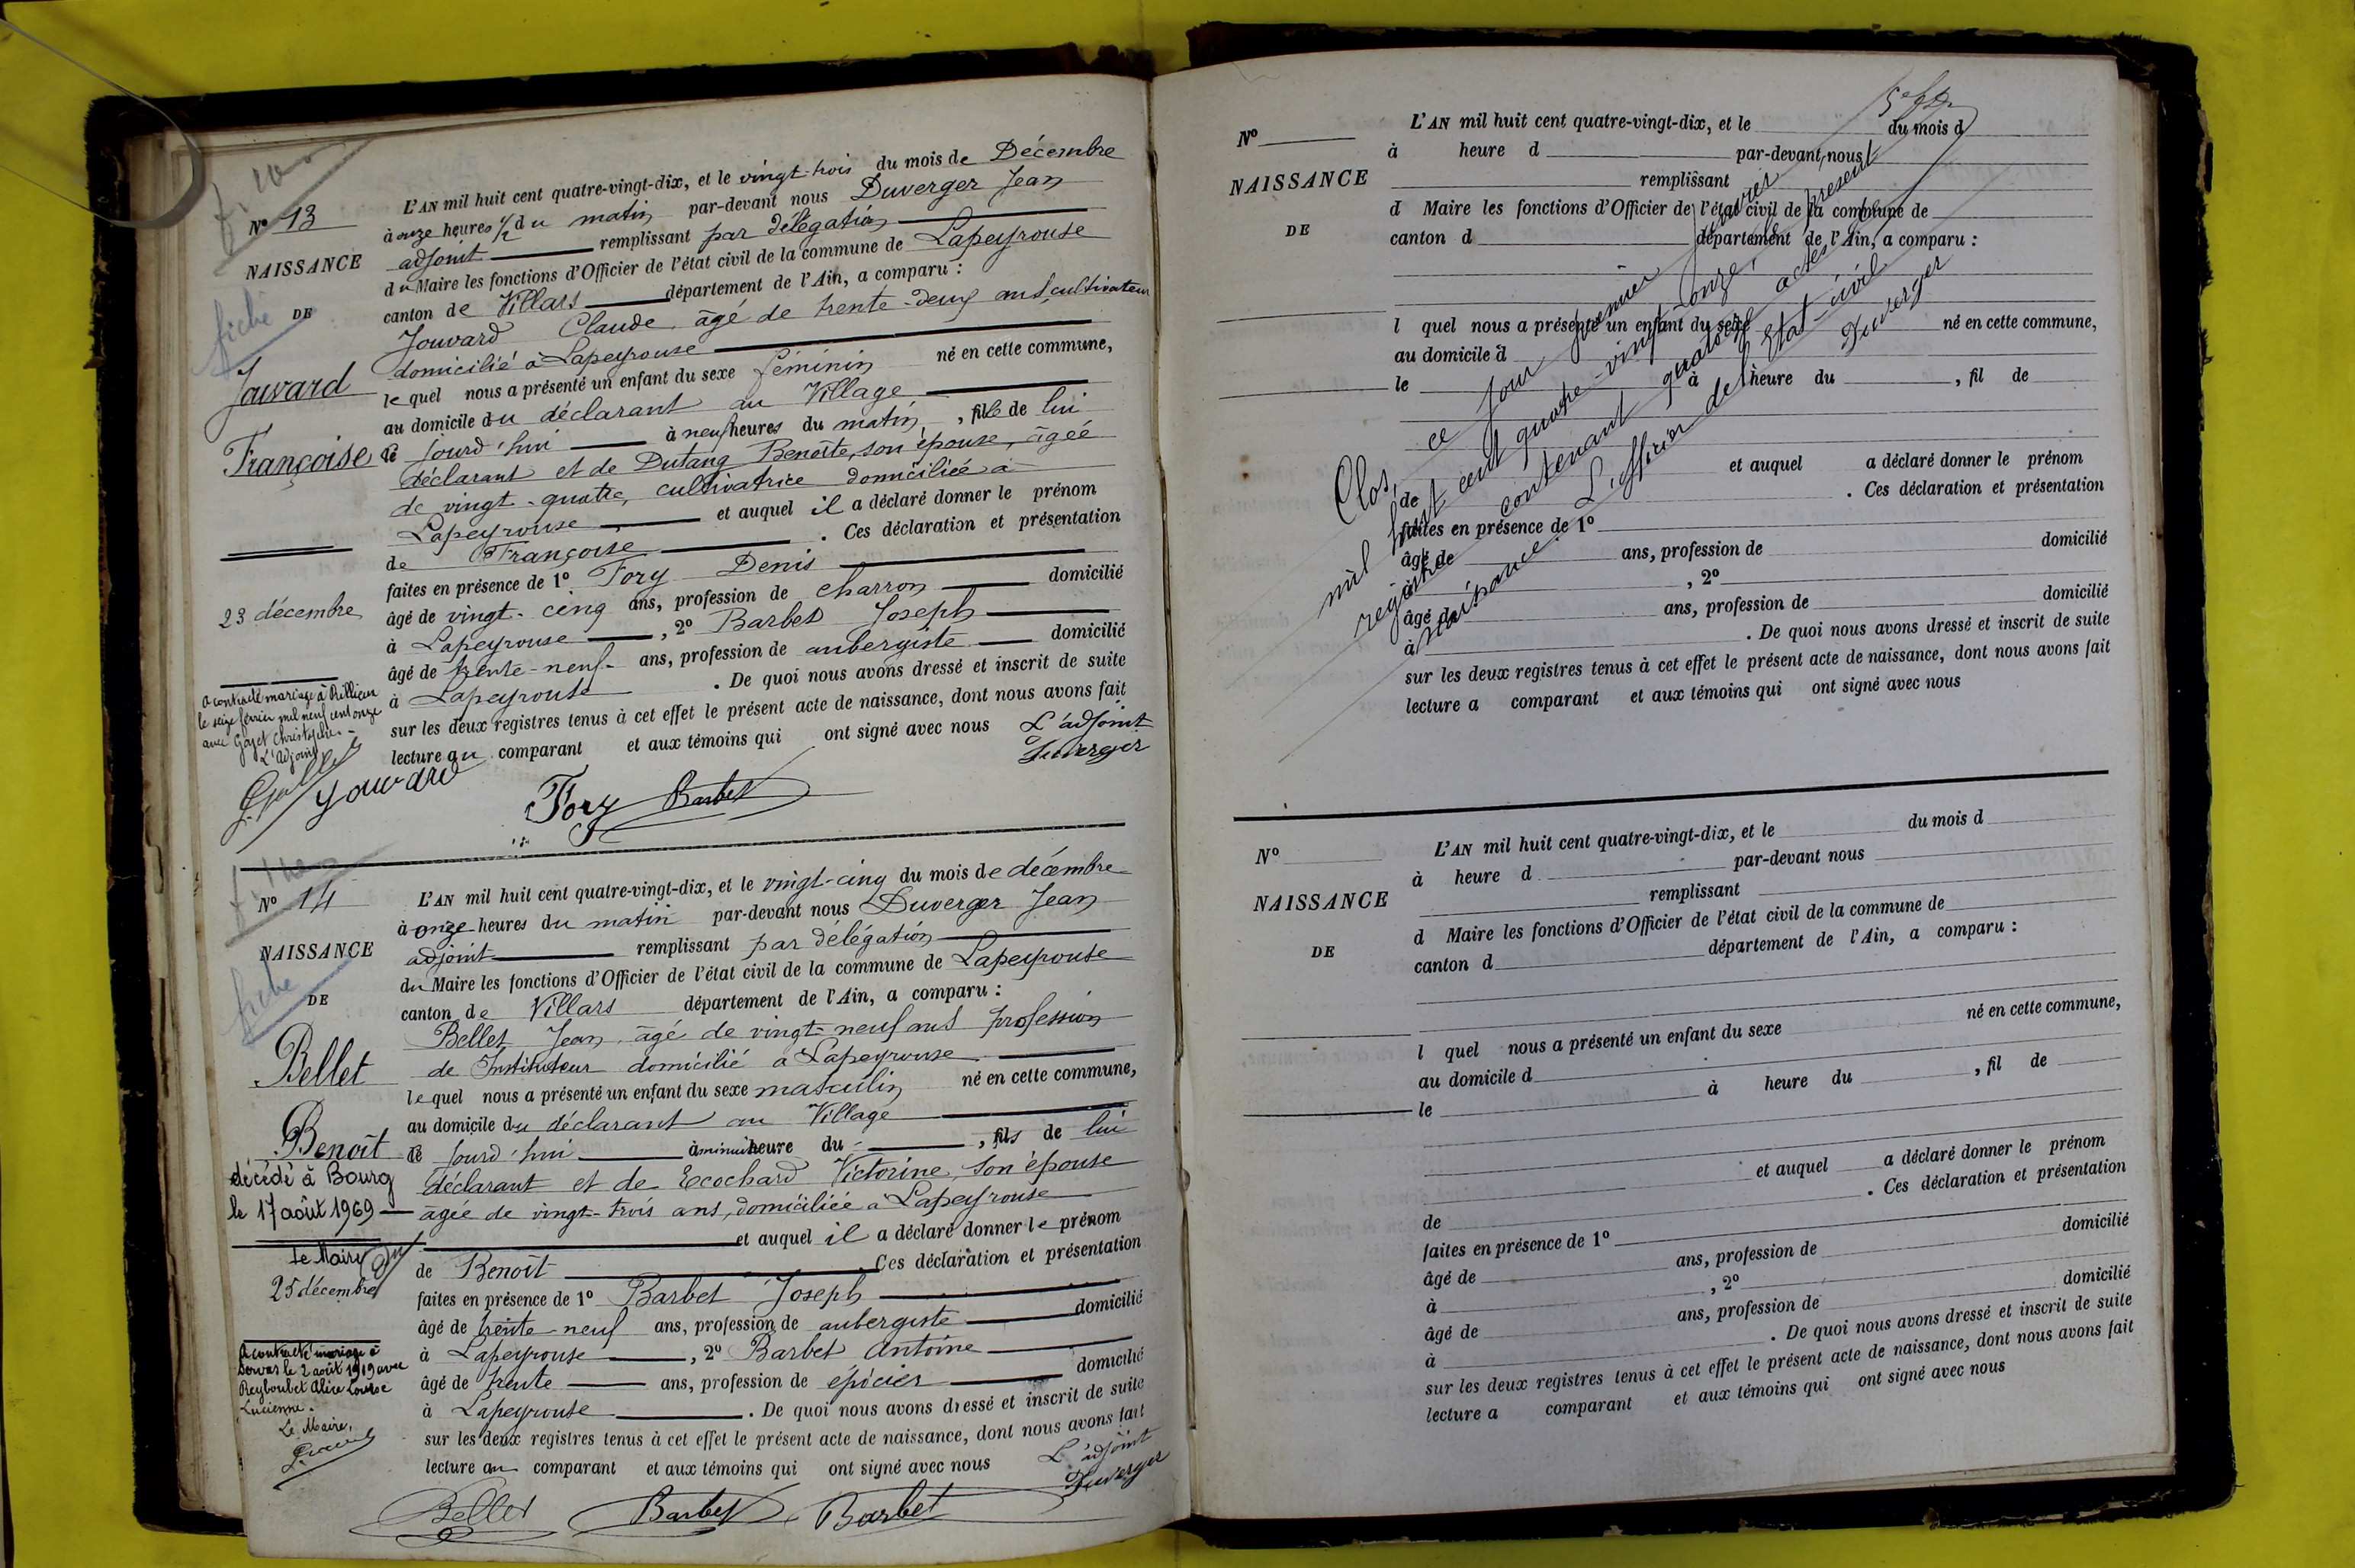 Nº 13
NAISSANCE
DE
fiche
Jouvard
Françoise
23 décembre
A contracté mariage à Rillieux
le seize février mil neuf cent onze
avec Goyet Christophe.
L'Adjoint
L'AN mil huit cent quatre-vingt-dix, et le vingt-trois du mois de Décembre
à onze heures ½ du matin par-devant nous Duverger Jean
adjoint remplissant par délégation
du Maire les fonctions d'Officier de l'état civil de la commune de Lapeyrouse
canton de Villars département de l'Ain, a comparu :
Jouvard Claude, âgé de trente-deux ans, cultivateur
domicilié à Lapeyrouse
lequel nous a présenté un enfant du sexe féminin né en cette commune,
au domicile du déclarant au Village
le jourd'hui à neuf heures du matin, fille de lui
déclarant et de Dutang Benoîte, son épouse, âgée
de vingt-quatre, cultivatrice domiciliée à
Lapeyrouse et auquel il a déclaré donner le prénom
de Françoise. Ces déclaration et présentation
faites en présence de 1º Fory Denis
âgé de vingt-cinq ans, profession de charron domicilié
à Lapeyrouse, 2º Barbet Joseph
âgé de trente-neuf ans, profession de aubergiste domicilié
à Lapeyrouse. De quoi nous avons dressé et inscrit de suite
sur les deux registres tenus à cet effet le présent acte de naissance, dont nous avons fait
lecture au comparant et aux témoins qui ont signé avec nous L'adjoint
Duverger
Jouvard
Fory Barbet
Nº 14
NAISSANCE
DE
fiche
Bellet
Benoît
décédé à Bourg
le 17 août 1969
Le Maire
25 décembre
A contracté mariage à
Servas le 2 août 1919 avec
Reyboubet Alice Louise
Lucienne.
Le Maire,
L'AN mil huit cent quatre-vingt-dix, et le vingt-cinq du mois de décembre
à onze heures du matin par-devant nous Duverger Jean
adjoint remplissant par délégation
du Maire les fonctions d'Officier de l'état civil de la commune de Lapeyrouse
canton de Villars département de l'Ain, a comparu :
Bellet Jean, âgé de vingt-neuf ans profession
de Instituteur domicilié à Lapeyrouse
lequel nous a présenté un enfant du sexe masculin né en cette commune,
au domicile du déclarant au Village
le jourd'hui à minuit heure du, fils de lui
déclarant et de Ecochard Victorine, son épouse
âgée de vingt-trois ans, domiciliée à Lapeyrouse
et auquel il a déclaré donner le prénom
de Benoît Ces déclaration et présentation
faites en présence de 1º Barbet Joseph
âgé de trente-neuf ans, profession de aubergiste domicilié
à Lapeyrouse, 2º Barbet Antoine
âgé de trente ans, profession de épicier domicilié
à Lapeyrouse. De quoi nous avons dressé et inscrit de suite
sur les deux registres tenus à cet effet le présent acte de naissance, dont nous avons fait
lecture au comparant et aux témoins qui ont signé avec nous L'adjoint
Duverger
Bellet Barbet Barbet
Nº
NAISSANCE
DE
L'AN mil huit cent quatre-vingt-dix, et le du mois d
à heure d par-devant nous
remplissant
d Maire les fonctions d'Officier de l'état civil de la commune de
canton d département de l'Ain, a comparu :
l quel nous a présenté un enfant du sexe né en cette commune,
au domicile d
le à heure du , fil de
et auquel a déclaré donner le prénom
de . Ces déclaration et présentation
faites en présence de 1º
âgé de ans, profession de domicilié
à , 2º
âgé de ans, profession de domicilié
à . De quoi nous avons dressé et inscrit de suite
sur les deux registres tenus à cet effet le présent acte de naissance, dont nous avons fait
lecture a comparant et aux témoins qui ont signé avec nous
Clos, ce jour premier Janvier
mil huit cent quatre-vingt-onze, le présent
registre contenant quatorze actes de
naissance. L'officier de l'Etat-civil
Duverger
Nº
NAISSANCE
DE
L'AN mil huit cent quatre-vingt-dix, et le du mois d
à heure d par-devant nous
remplissant
d Maire les fonctions d'Officier de l'état civil de la commune de
canton d département de l'Ain, a comparu :
l quel nous a présenté un enfant du sexe né en cette commune,
au domicile d
le à heure du , fil de
et auquel a déclaré donner le prénom
de . Ces déclaration et présentation
faites en présence de 1º
âgé de ans, profession de domicilié
à , 2º
âgé de ans, profession de domicilié
à . De quoi nous avons dressé et inscrit de suite
sur les deux registres tenus à cet effet le présent acte de naissance, dont nous avons fait
lecture a comparant et aux témoins qui ont signé avec nous